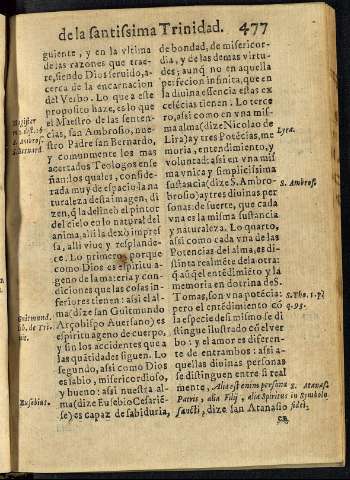 de la santissima Trinidad. 477
guiente, y en la vltima
de las razones que trae-
re, siendo Dios seruido, a-
cerca de la encarnacion
del Verbo. Lo que a este
proposito haze, es lo que
el Maestro de las senten-
cias, san Ambrosio, nue-
stro Padre san Bernardo,
y comunmente los mas
acertados Teologos ense
ñan: los quales, conside-
rada muy de espacio la na
turaleza desta imagen, di
zen, q̃ la delineò el pintor
del cielo en lo natural del
anima, alli la dexò impres
sa, alli viue y resplande-
ce. Lo primero, porque
como Dios es espiritu a-
geno de la materia, y con-
diciones que las cosas in-
feriores tienen: assi el al-
ma (dize san Guitmundo
Arçobispo Auersano) es
espiritu ageno de cuerpo,
y sin los accidentes que a
las quãtidades siguen. Lo
segundo, assi como Dios
es sabio, misericordioso,
y bueno: assi nuestra al-
ma (dize Eusebio Cesariē-
se) es capaz de sabiduria,
Magister
S. Ambros.
Bernard.
Guitmund.
lib. de Tri-
Eusebius.
de bondad, de misericor-
dia, y de las demas virtu-
des; aunq̃ no en aquella
perfeccion infinita, que en
la diuina essencia estas ex
celẽcias tienen. Lo terce
ro, assi como en vna mis
ma alma (dize Nicolao de
Lira) ay tres Potẽcias, me
moria, entendimiento, y
voluntad: assi en vna mis
ma vnica y simplicissima
sustancia (dize S. Ambro-
sio) ay tres diuinas per-
sonas: de suerte, que cada
vna es la misma sustancia
y naturaleza. Lo quarto,
assi como cada vna de las
Potencias del alma, es di-
stinta realmẽte dela otra:
q̃ aũq̃ el entẽdimiẽto y la
memoria en dotrina de S.
Tomas, son vna potẽcia:
pero el entẽdimiento cõ
la especie de si mismo se di
stingue ilustrado cõ el ver
bo: y el amor es diferen-
te de entrambos: assi a-
quellas diuinas personas
se distinguen entre si real
mente, Alia est enim persona
Patris, alia Filij, alia Spiritus
sancti, dize san Atanasio
Lyra.
S. Ambros.
S. Tho. 1. p.
q. 93.
S. Atanas.
in Symbolo
fidei.